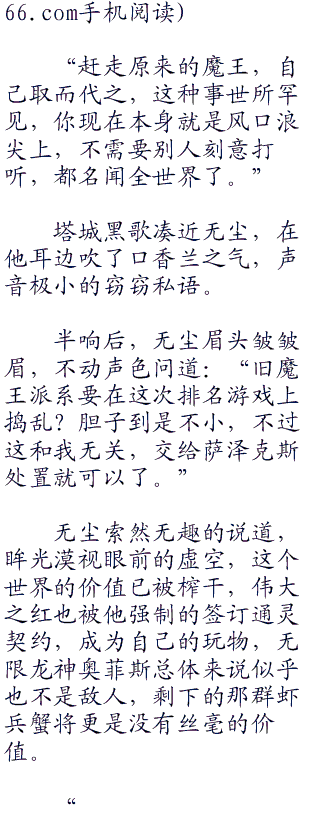 66.com手机阅读）
“赶走原来的魔王，自
己取而代之，这种事世所罕
见，你现在本身就是风口浪
尖上，不需要别人刻意打
听，都名闻全世界了。”
塔城黑歌凑近无尘，在
他耳边吹了口香兰之气，声
音极小的窃窃私语。
半响后，无尘眉头皱皱
眉，不动声色问道：“旧魔
王派系要在这次排名游戏上
捣乱？胆子到是不小，不过
这和我无关，交给萨泽克斯
处置就可以了。”
无尘索然无趣的说道，
眸光漠视眼前的虚空，这个
世界的价值已被榨干，伟大
之红也被他强制的签订通灵
契约，成为自己的玩物，无
限龙神奥菲斯总体来说似乎
也不是敌人，剩下的那群虾
兵蟹将更是没有丝毫的价
值。
“